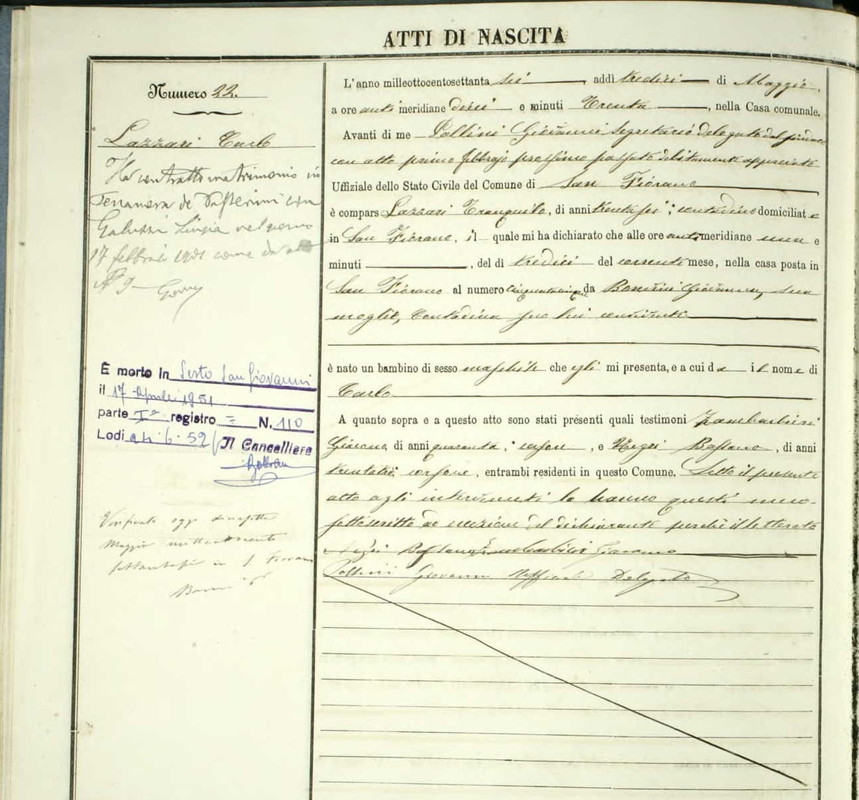 ATTI DI NASCITA
Numero 22
Lazzari Carlo
Ha contratto matrimonio in
Terranova de Passerini con
Galuzzi Luigia nel giorno
17 febbrai 1901 come da atto
N° 9
È morto in Sesto San Giovanni
il 17 Aprile 1951
parte I° registro = N. 110
Lodi 6. 52 Il Cancelliere
Maggio
in S. Fiorano
L'anno milleottocentosettanta sei addì tredici di Maggio,
a ore anti meridiane dieci e minuti trenta, nella Casa comunale.
Avanti di me Pollini Giovanni Segretario delegato dal Sindaco
con atto primo febbrajo prossimo passato debitamente approvato
Uffiziale dello Stato Civile del Comune di San Fiorano
è comparso Lazzari Tranquilo, di anni trentasei, contadino domiciliato
in San Fiorano, il quale mi ha dichiarato che alle ore anti meridiane una e
minuti , del dì tredici del corrente mese, nella casa posta in
San Fiorano al numero cinquantacinque da Giovanna, sua
moglie, Contadina seco lui convivente
è nato un bambino di sesso maschile che egli mi presenta, e a cui dà il nome di
Carlo
A quanto sopra e a questo atto sono stati presenti quali testimoni Zambarbieri
Giacomo, di anni quaranta, , e Bassano, di anni
trentatre, , entrambi residenti in questo Comune. Letto il presente
atto agli intervenuti lo hanno questi meco
sottoscritto ad eccezione del dichiarante perchè illetterato
Bassano Zambarbieri Giacomo
Pollini Giovanni Uffiziale Delegato